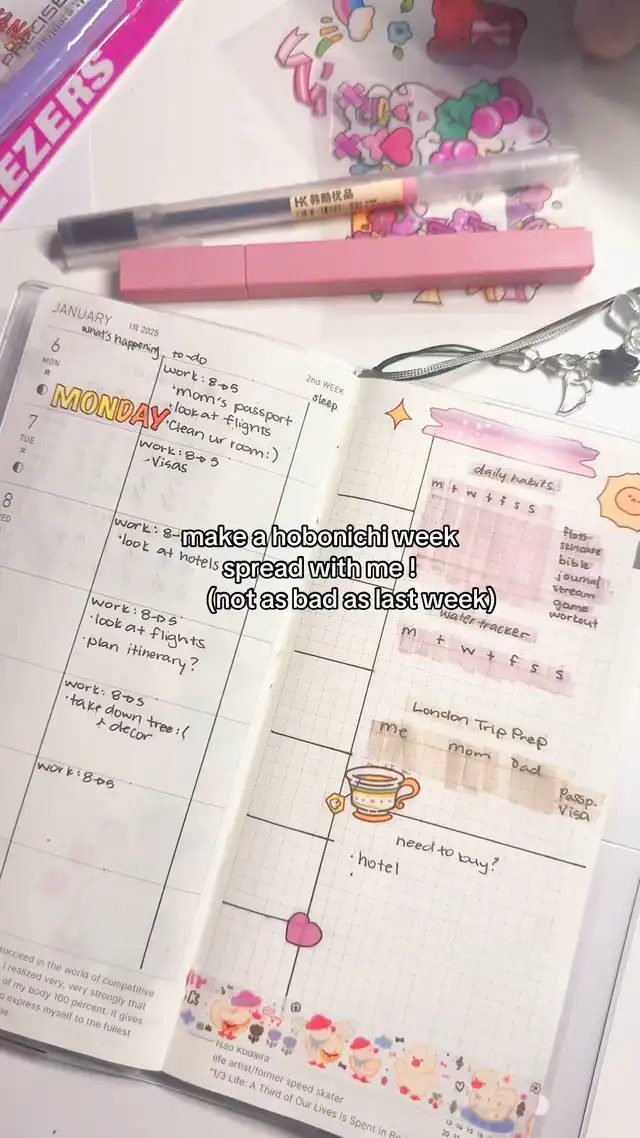 PRECISE
EEZERS
HK 韩酷优品
JANUARY 1月 2025
what's happening
to-do
2nd WEEK
sleep
6
MON
月
MONDAY
work: 8→5
·mom's passport
·look at flights
·Clean ur room:)
7
TUE
火
work: 8→5
·Visas
8
WED
work: 8→
·look at hotels
work: 8→5
·look at flights
·plan itinerary?
work: 8→5
·take down tree:(
+ decor
work: 8→5
make a hobonichi week
spread with me !
(not as bad as last week)
daily habits
m t w t f s s
floss
skincare
bible
journal
stream
game
workout
water tracker
m t w t f s s
London Trip Prep
me mom Dad
Passp.
Visa
need to buy?
·hotel
·
succeed in the world of competitive
I realized very, very strongly that
of my body 100 percent. It gives
o express myself to the fullest
Nao Kodaira
life artist/former speed skater
"1/3 Life: A Third of Our Lives Is Spent in Be